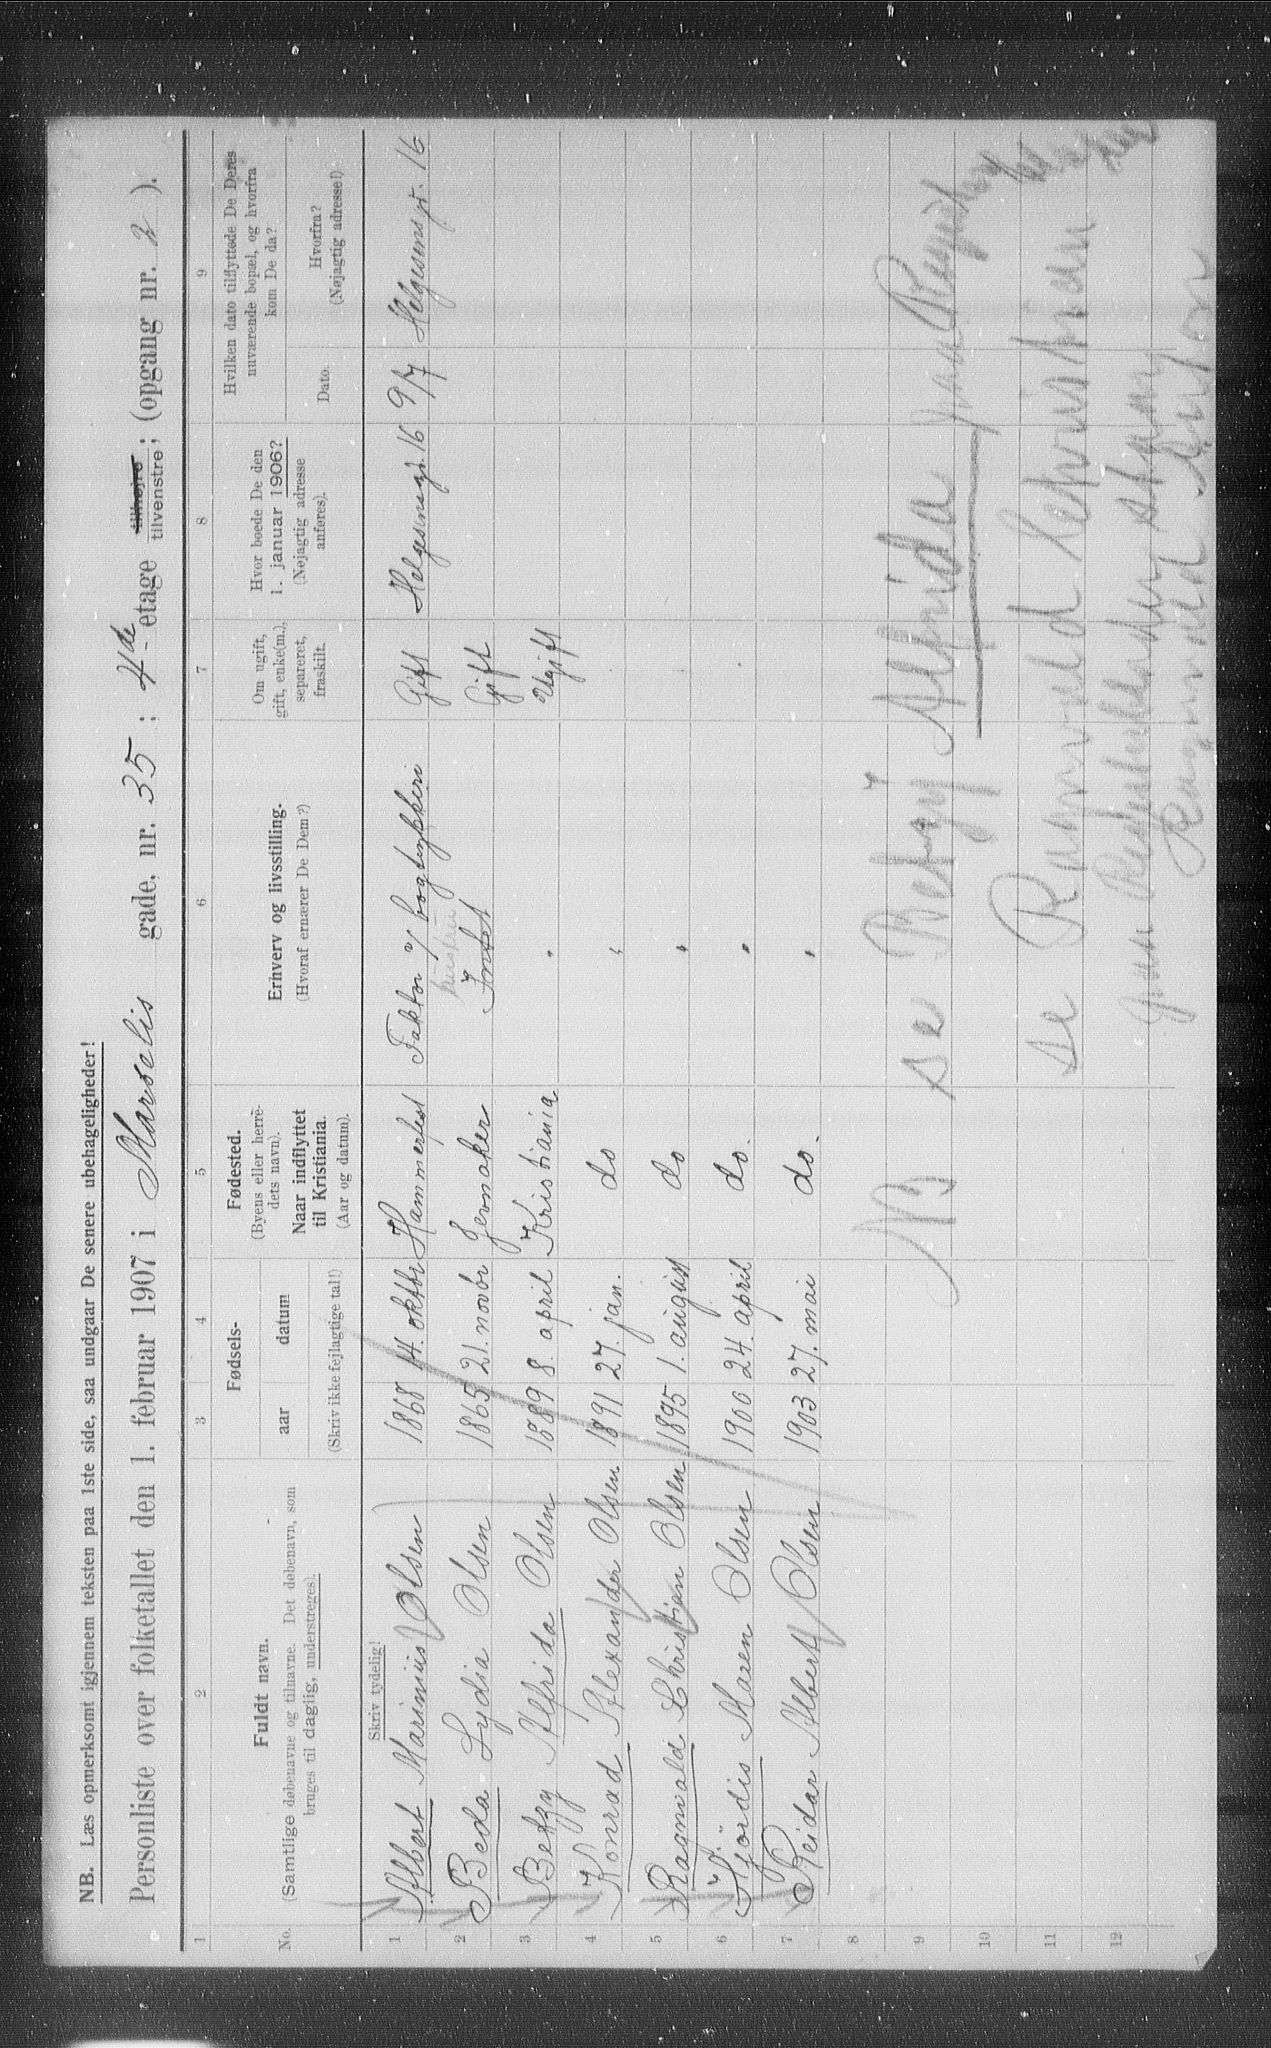 NB. Læs opmerksomt igjennem teksten paa 1ste side, saa undgaar De senere ubehageligheder!
Personliste over folketallet den 1. februar 1907 i Marselis gade, nr. 35 ; 4de etage tilhøjre tilvenstre; (opgang nr. 2 ).
1 2 3 4 5 6 7 8 9
No.
Fuldt navn.
(Samtlige døbenavne og tilnavne. Det døbenavn, som
bruges til dagtlig, understreges).
Fødsels-
aar datum
(Skriv ikke fejlagtige tal!)
Fødested.
(Byens eller herre-
dets navn).
Naar indflyttet
til Kristiania.
(Aar og datum).
Erhverv og livsstilling.
(Hvoraf ernærer De Dem?)
Om ugift,
gift, enke(m.),
separeret,
fraskilt.
Hvor boede De den
1. januar 1906?
(Nøjagtig adresse
anføres).
Hvilken dato tilflyttede De Deres
nuværende bopæl, og hvorfra
kom De da?
Dato.
Hvorfra?
(Nøjagtig adresse!)
Skriv tydelig!
1 Albert Marinius Olsen 1868 14. oktbr Hammerfest Faktor i bogtrykkeri Gift Helgesensgt. 16 9/7 Helgesens gt. 16
2 Beda Lydia Olsen 1865 21. novbr Jevnaker hustru Intet Gift
3 Betzy Alfrida Olsen 1889 8. april Kristiania " Ugift
4 Konrad Alexander Olsen 1891 27. jan. do "
5 Ragnvald Christian Olsen 1895 1. august do "
6 Hjördis Maren Olsen 1900 24. april do. "
7 Reidar Albert Olsen 1903 27. mai do. "
8
9 NB se Betzy Alfrida
10
11 se Ragnvald Christian
12